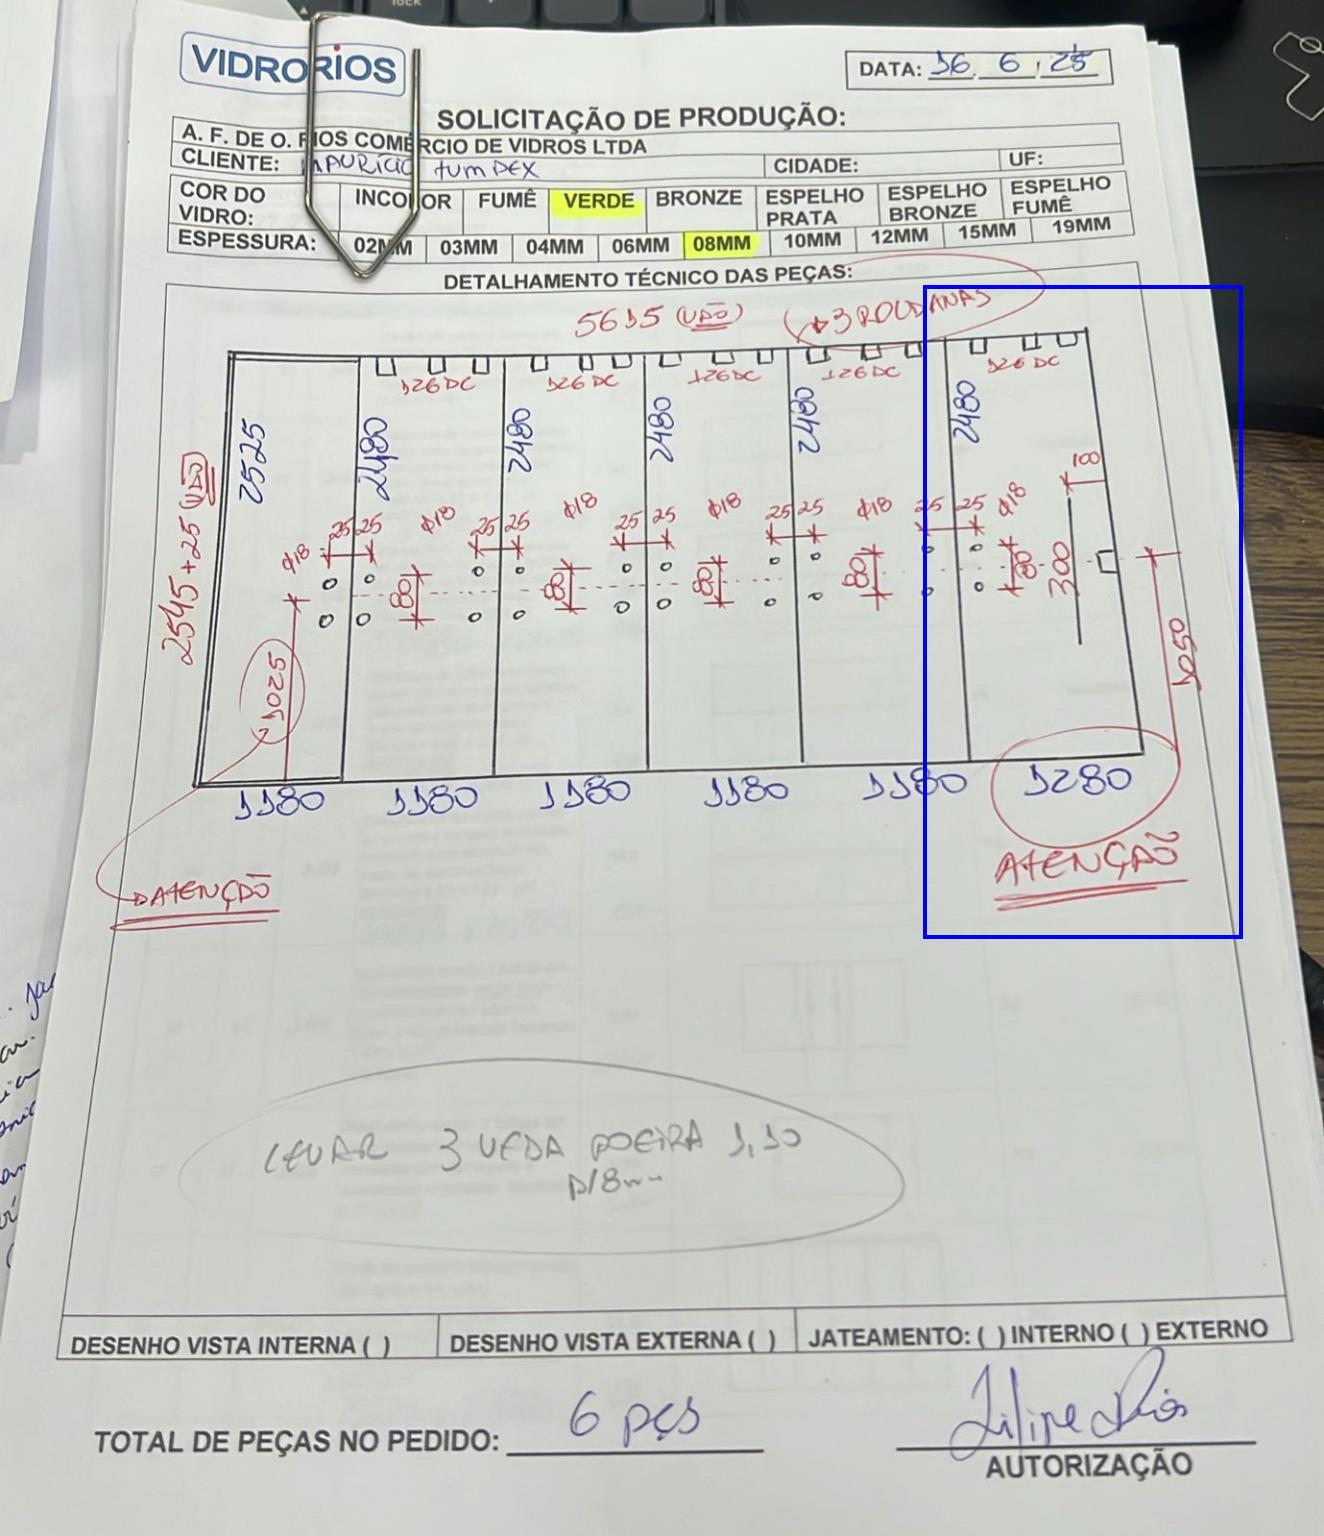 VIDRORIOS
DATA: 16 6 25
SOLICITAÇÃO DE PRODUÇÃO:
A. F. DE O. RIOS COMÉRCIO DE VIDROS LTDA
CLIENTE: MAURICIO tumDEX CIDADE: UF:
COR DO VIDRO: INCOLOR FUMÊ VERDE BRONZE ESPELHO PRATA ESPELHO BRONZE ESPELHO FUMÊ
ESPESSURA: 02MM 03MM 04MM 06MM 08MM 10MM 12MM 15MM 19MM
DETALHAMENTO TÉCNICO DAS PEÇAS:
5615 (VÃO) 3 ROLDANAS
126 DC 126 DC 126 DC 126 DC 126 DC
2525 2480 2480 2480 2480 2480
2545 +25 (VÃO)
100
25 25 25 25 25 25 25 25 25 25
φ18 φ18 φ18 φ18 φ18 φ18
80 80 80 80 80 300
1025 1050
1180 1180 1180 1180 1180 1280
ATENÇÃO
ATENÇÃO
LEVAR 3 VEDA POEIRA 1,10
P/8mm
DESENHO VISTA INTERNA ( ) DESENHO VISTA EXTERNA ( ) JATEAMENTO: ( ) INTERNO ( ) EXTERNO
TOTAL DE PEÇAS NO PEDIDO: 6 pçs
Filipe Rios
AUTORIZAÇÃO